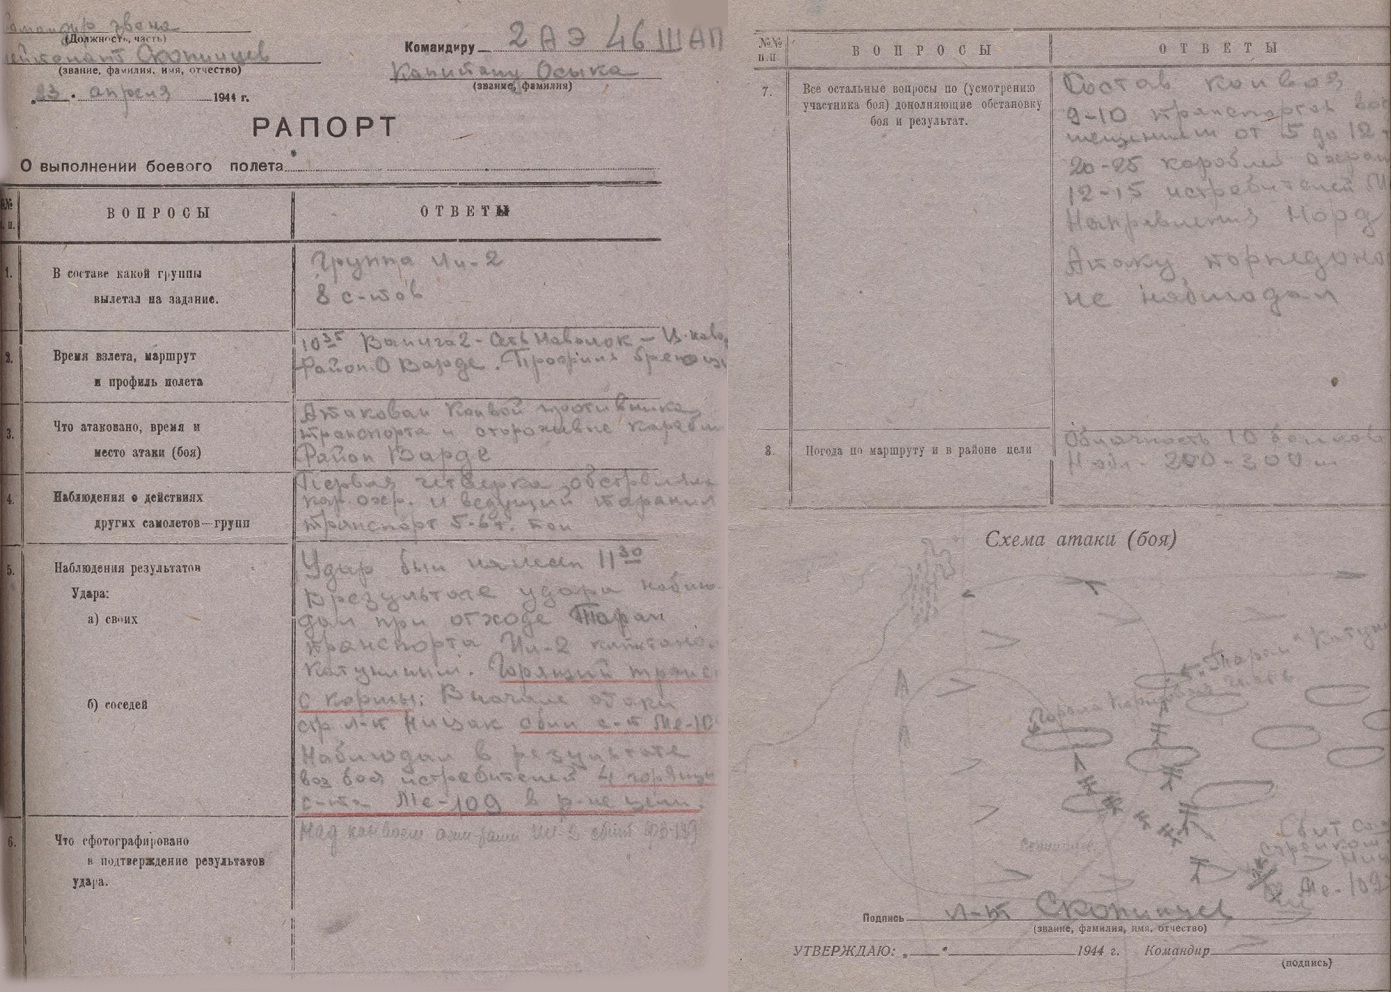 Командир звена
(Должность, часть)
лейтенант Скопинцев
(звание, фамилия, имя, отчество)
„23" апреля 1944 г.
Командиру 2 АЭ 46 ШАП
Капитану Осыка
(звание, фамилия)
РАПОРТ
О выполнении боевого полета
№№ п. п.
ВОПРОСЫ
ОТВЕТЫ
1.
В составе какой группы
вылетал на задание.
Группа Ил-2
8 с-тов
2.
Время взлета, маршрут
и профиль полета
10 35 Ваенга 2 - Сеть Наволок - Ц-
Район О Варде. Профиль
3.
Что атаковано, время и
место атаки (боя)
Атаковал конвой противника
транспорта и сторожевые корабли
Район Варде
4.
Наблюдения о действиях
других самолетов—групп
Первая четверка обстреляла
кор. охр. и ведущий таранил
транспорт 5-6 т. тон
5.
Наблюдения результатов
Удара:
а) своих
Удар был нанесен 11 30
В результате удара наблю-
дал при отходе Таран
транспорта Ил-2 капитаном
Катуниным. Горящий транс
с кормы: Вначале атаки
б) соседей
ст л-т Нишак сбил с-т Ме-10
Наблюдал в результате
воз боя истребителей 4 горящи
с-та Ме-109 в р-не цели.
6.
Что сфотографировано
в подтверждение результатов
удара.
Над конвоем Ил-2 сбит
№№ п.п
ВОПРОСЫ
ОТВЕТЫ
7.
Все остальные вопросы по (усмотрению
участника боя) дополняющие обстановку
боя и результат.
Состав конвоя
9-10 транспортов вод
мещением от 5 до 12
20-25 кораблей охран
12-15 истребителей М
Направления Норд
Атаку торпедоно
не наблюдал
8.
Погода по маршруту и в районе цели
Облачность 10 баллов
200-300 м
Схема атаки (боя)
Таран Катун
Горела
Сбит
Ме-109
Подпись л-т Скопинцев
(звание, фамилия, имя, отчество)
УТВЕРЖДАЮ: „ " 1944 г. Командир
(подпись)